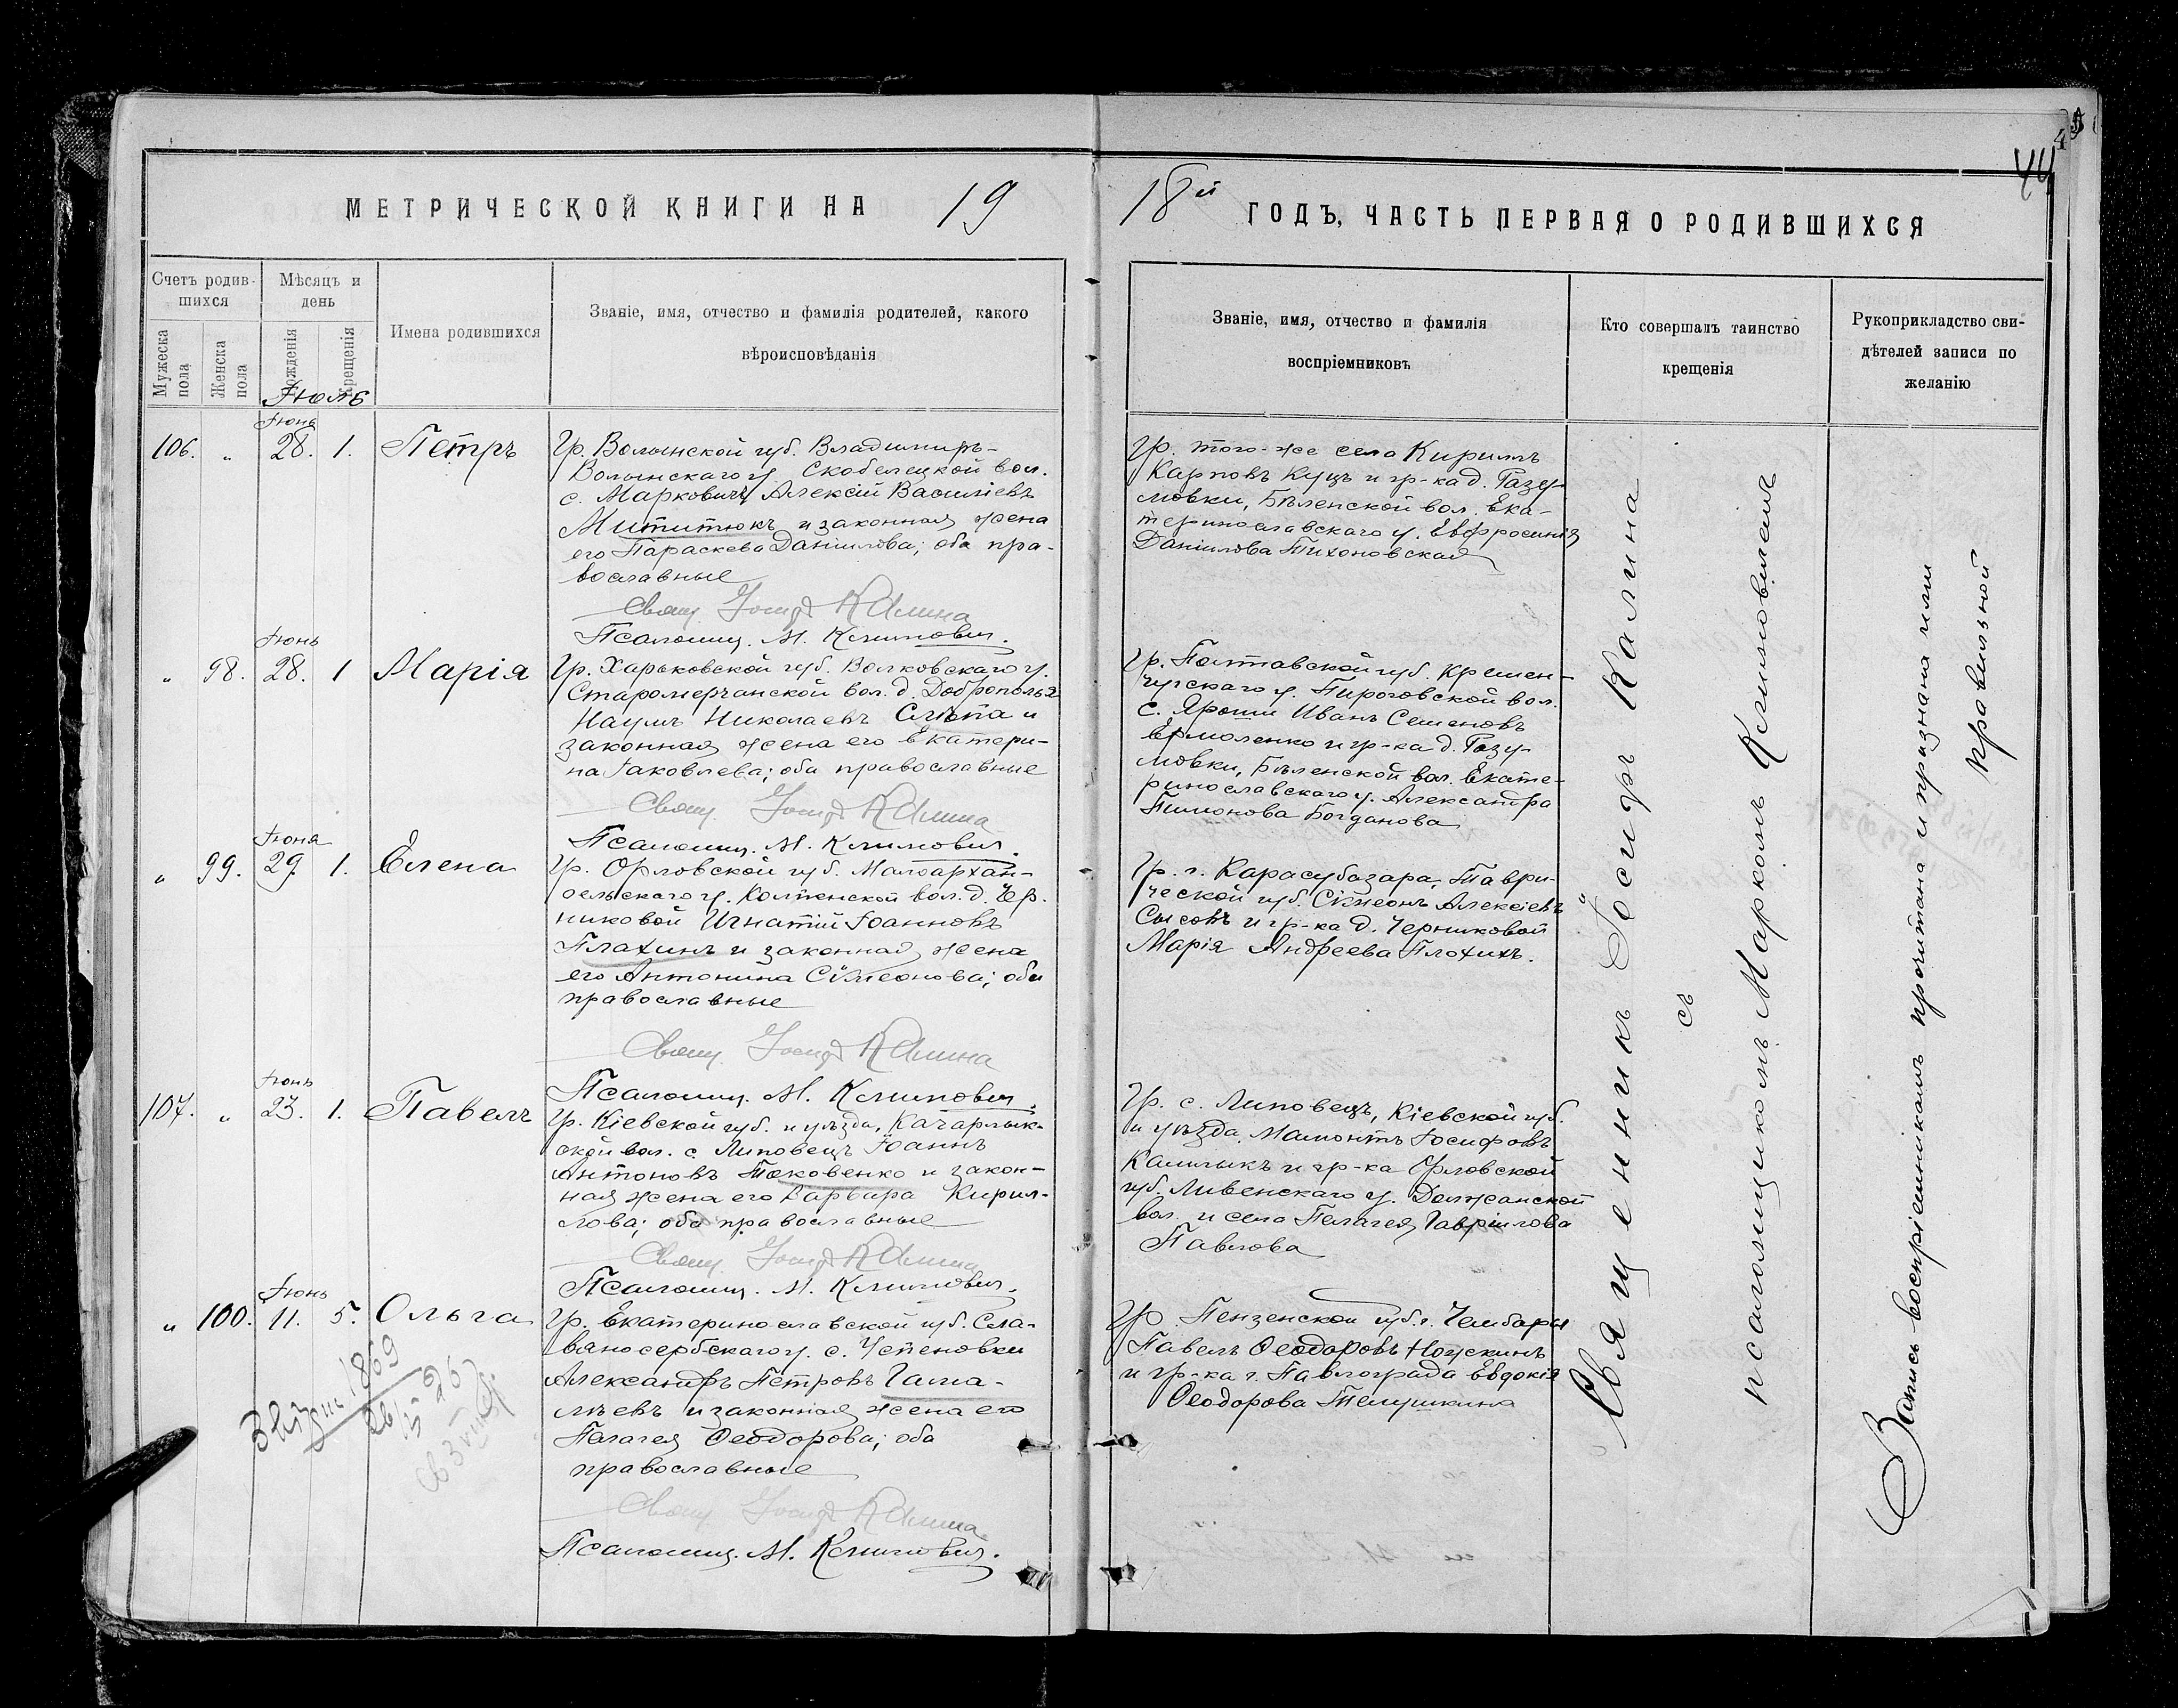 44
МЕТРИЧЕСКОЙ КНИГИ НА 19
18й ГОДЪ, ЧАСТЬ ПЕРВАЯ О РОДИВШИХСЯ
Счетъ родив-
шихся
Мужеска пола
Женска пола
Мѣсяцъ и
день
рожденія
крещенія
Имена родившихся
Званіе, имя, отчество и фамилія родителей, какого
вѣроисповѣданія
Званіе, имя, отчество и фамилія
воспріемниковъ
Кто совершалъ таинство
крещенія
Рукоприкладство сви-
дѣтелей записи по
желанію
Іюль
Іюня
106. „ 28. 1. Петръ
Гр. Волынской губ. Владимиръ-
Волынскаго у. Скобелецкой вол.
с. Марковичъ Алексій Василіевъ
Мититюкъ и законная жена
его Параскева Даніилова; оба пра-
вославные
Свящ. Іосиф Калина
Псаломщ. М. Климович.
Гр. того-же села Кириллъ
Карповъ Куцъ и гр-ка д. Разу-
мовки, Бѣленской вол. Ека-
теринославскаго у. Евфросинія
Даніилова Тихоновская
Іюнь
„ 98. 28. 1 Марія
Гр. Харьковской губ. Волковскаго у.
Старомерчанской вол. д. Доброполья
Наумъ Николаевъ Слѣпа и
законная жена его Екатери-
на Іаковлева; оба православные
Свящ. Іосиф Калина
Псаломщ. М. Климович.
Гр. Полтавской губ. Кремен-
чугскаго у. Пироговской вол.
с. Яроши Иванъ Семеновъ
Ермоленко и гр-ка д. Разу-
мовки, Бѣленской вол. Екате-
ринославскаго у. Александра
Пимонова Богданова
Іюня
„ 99. 29. 1. Елена
Гр. Орловской губ. Малоархан-
гельскаго у. Колпенской вол. д. Чер-
никовой Игнатій Іоанновъ
Плахинъ и законная жена
его Антонина Сімеонова; оба
православные
Свящ. Іосиф Калина
Псаломщ. М. Климович.
Гр. г. Карасубазара, Таври-
ческой губ. Сімеонъ Алексіевъ
Сысовъ и гр-ка д. Черниковой
Марія Андреева Плохихъ.
Іюнь
107. „ 23. 1. Павелъ
Гр. Кіевской губ. и уѣзда, Качарлык-
ской вол. с. Липовецъ Іоаннъ
Антоновъ Таковенко и закон-
ная жена его Варвара Кирил-
лова; оба православные
Свящ. Іосиф Калина
Псаломщ. М. Климович.
Гр. с. Липовецъ, Кіевской губ.
и уѣзда Мамонтъ Іосифовъ
Калмыкъ и гр-ка Орловской
губ. Ливенскаго у. Должанской
вол. и села Пелагея Гавріилова
Павлова
Іюнь
„ 100. 11. 5. Ольга
Гр. Екатеринославской губ. Сла-
вяносербскаго у. с. Успеновки
Александръ Петровъ Гама-
лѣевъ и законная жена его
Пелагея Ѳеодорова; оба
православные
Свящ. Іосиф Калина
Псаломщ. М. Климович.
Гр Пензенской губ. г. Чембары
Павелъ Ѳеодоровъ Ножкинъ
и гр-ка г. Павлограда Евдокія
Ѳеодорова Темушкина
1869
Священникъ Іосифъ Калина
съ
псаломщикомъ Маркомъ Климовичемъ
Запись воспріемникамъ прочитана и признана ими
правильной